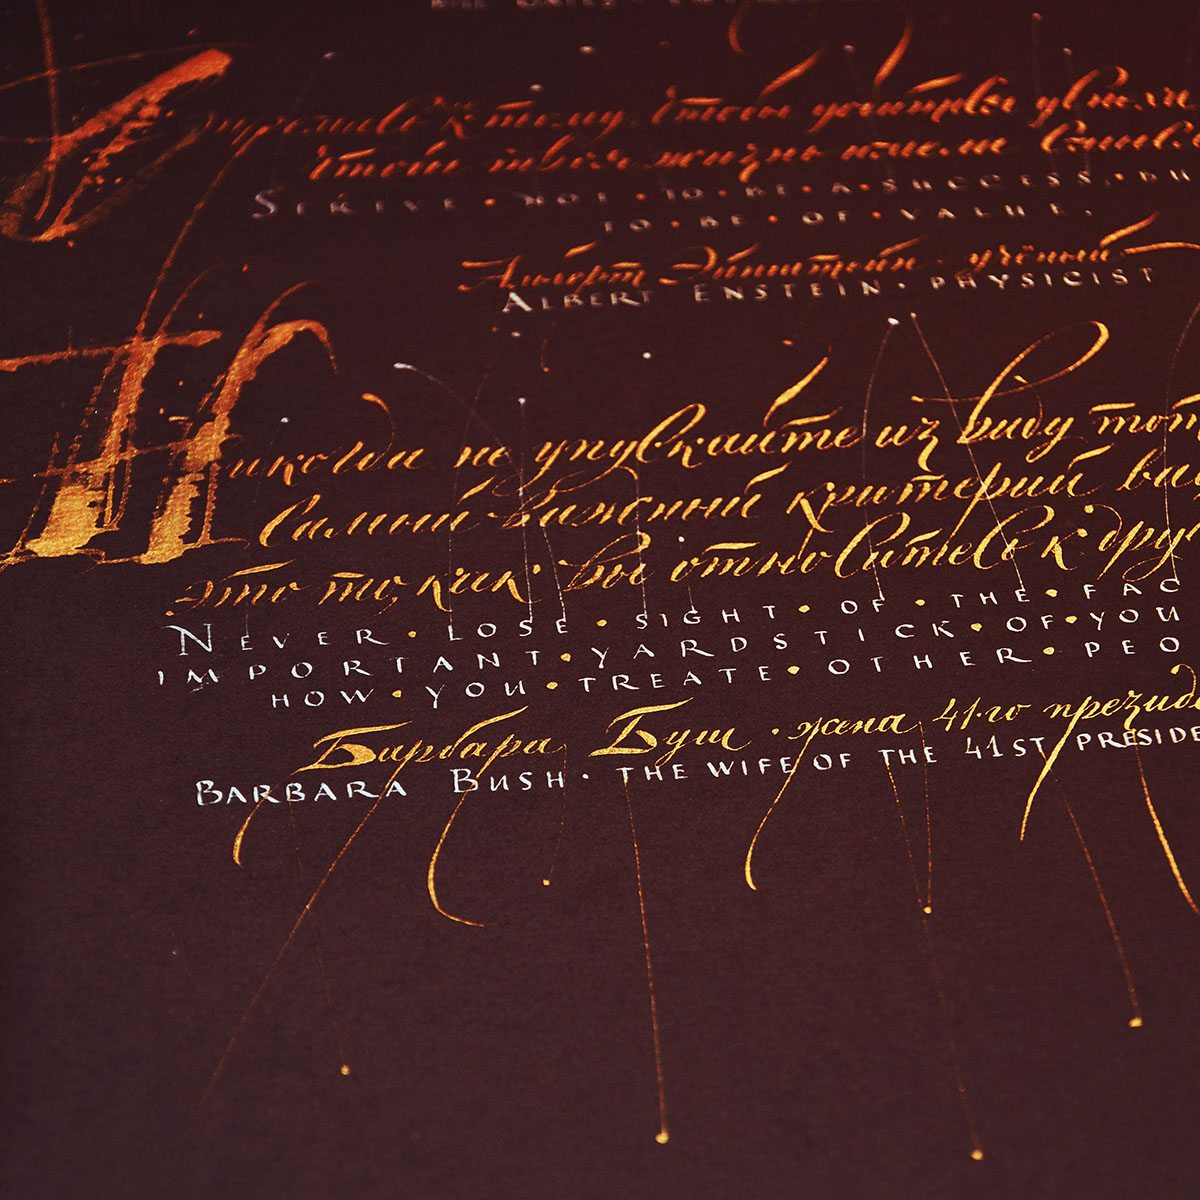 Стремись к тому, чтобы
чтобы твоя жизнь имела
STRIVE • NOT • TO • BE • A • SUCCESS, • BU
TO • BE • OF • VALUE.
Альберт Эйнштейн · учёный
ALBERT ENSTEIN · PHYSICIST
Никогда не упускайте из виду тот
самый важный критерий
это то, как вы относитесь к дру
NEVER • LOSE • SIGHT • OF • THE • FAC
IMPORTANT • YARDSTICK • OF • YOU
HOW • YOU • TREATE • OTHER • PEO
Барбара Буш · жена 41-го презид
BARBARA BUSH · THE WIFE OF THE 41ST PRESIDE